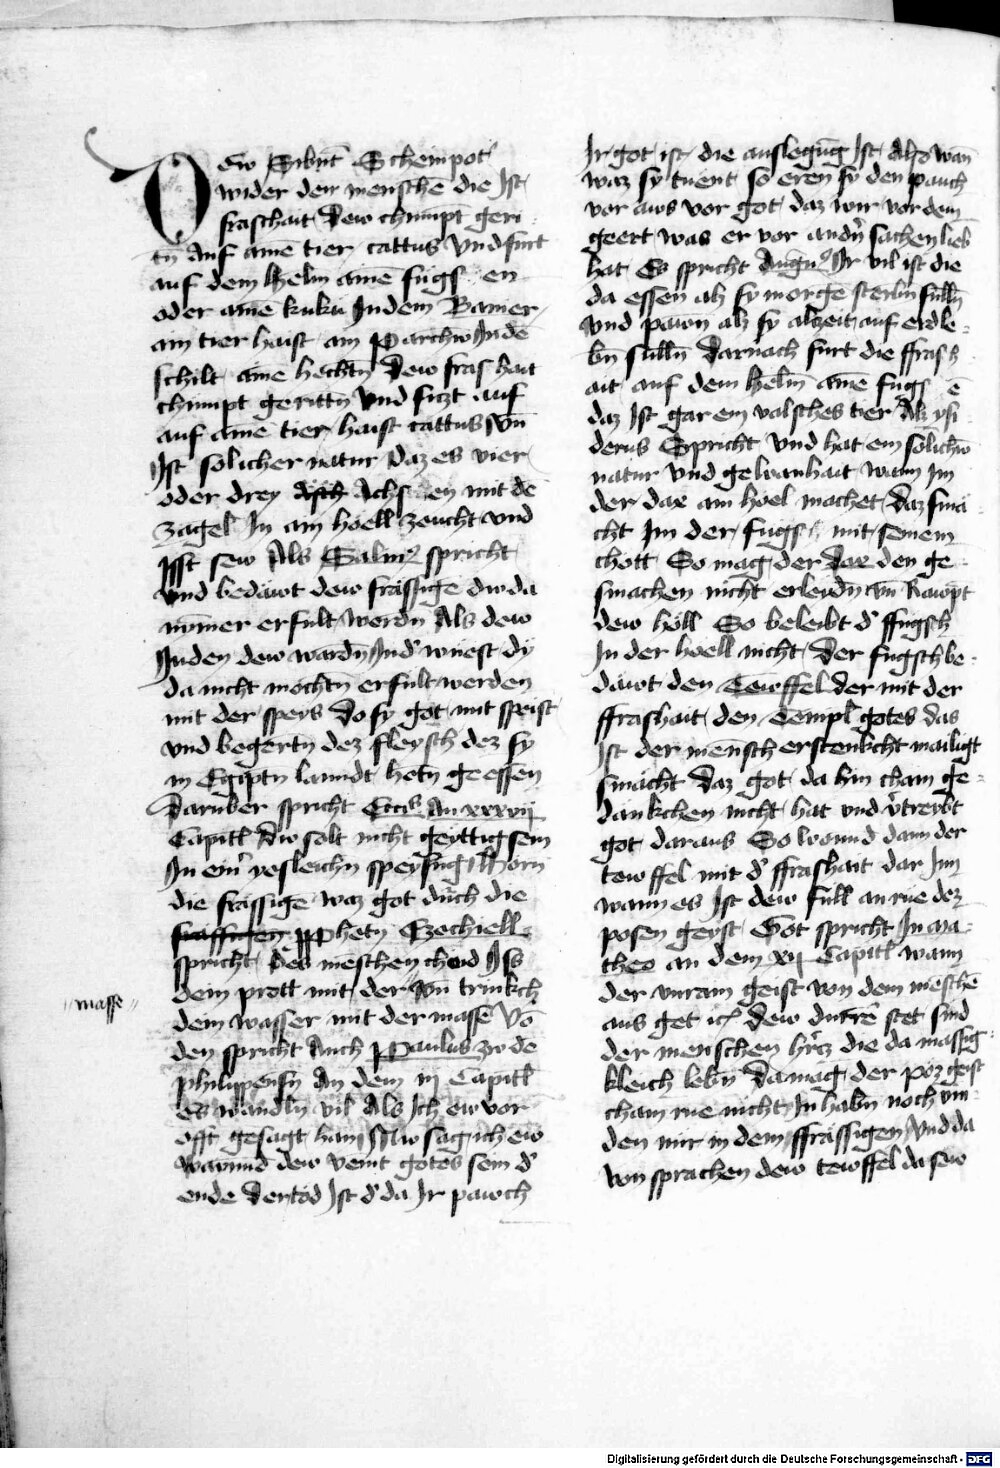 Dew Sibnt Schempot
wider den menschē die Ist
fraschait Dew chumpt geri
tn̄ Auf ame tier cattus Vnd furt
auf dem Helm ame fugs en
oder amē kuku Indem Banier
am tier haist am Parchus In dē
schilt amē hechtn̄ Dew fras hait
chumpt gerittn̄ Vnd siczt auf
auf amē tier haist cattus Vn̄
Ist solicher natur Daz es vier
oder drey Achs en mit dē
zagel In am hoell zeucht vnd
Isst sew Als Salin spricht
vnd bedawt dew frässigē die da
nymer erfult werdn̄ Als dew
Juden dew wardn̄ In d' wüest dy
da nicht mochtn̄ erfult werden
mit der speys Do sy got mit speist
vnd begertn̄ dez fleysch dez sy
in Egiptn̄ lanndt hetn̄ geessen
Darüber spricht Eccīs An xxxvij
Capitl Dw solt nicht geyttig sein
In ein' yesleichn̄ speysung Horn
die frässigē waz got durch die
frassigen pphetn̄ Ezechiell
spricht Des menschen chind Iss
dein prott mit der Vn̄ trinkch
"masse"
dein wasser mit der massē Vō
den spricht Auch Paulus zw dē
Philippensn̄ An dem iij Capitl
Es wandln̄ vil Als Ich ew vor
offt gesagt han Nw sag ich ew
wainund dew veint gotes sein d'
ende Der tod Ist d' da Ir pawch
Ir got ist die auslegūg Ist Also wan̄
waz sy tuent so eren sy den pauch
vor aws vor got daz wir vor dem
geert was er vor andn̄ sachen lieb
hat Es spricht Augu Ir vil ist die
da essen als sy morgē sterbn̄ sulln̄
Vnd pawn als sy alzeit auf erd le
bn̄ sulln̄ Darnach furt die ffrash
ait auf dem Helm amē fugs ē
daz Ist gar ein valsches tier Als ysi
derus Spricht Vnd hat ein sölichew
natur Vnd gewanhait wann Im
der dax ain hoel machet Daz sma
cht Im der fugs mit seinem
chott So mag der Dax den ge
smachen nicht erleidn̄ vn̄ Rawmpt
dew höll So beleibt d' ffugsch
In der hoell nicht Der fugsch be
dawt den Tewffel der mit der
ffrashait den Templ gotes das
Ist der mensch erstenlicht mailigt
smacht Daz got da hin cham ge
dankchen nicht hat vnd v'treybt
got daraus So wound dann der
tewffel mit d' ffrashait dar Inn
wann es Ist dew full an rue dez
posen geyst Got spricht In Ma
theo an dem xij Capitl wann
der vnrain geist von dem menschē
aus get ic dew durrē stet sind
der menschen hercz die da mässig
kleich lebn̄ Da mag der poz geist
cham rue nicht In habn̄ noch vin
den nur in dem ffrässigen Vnd da
von sprachen dew tewffel da sew
Digitalisierung gefördert durch die Deutsche Forschungsgemeinschaft - DFG